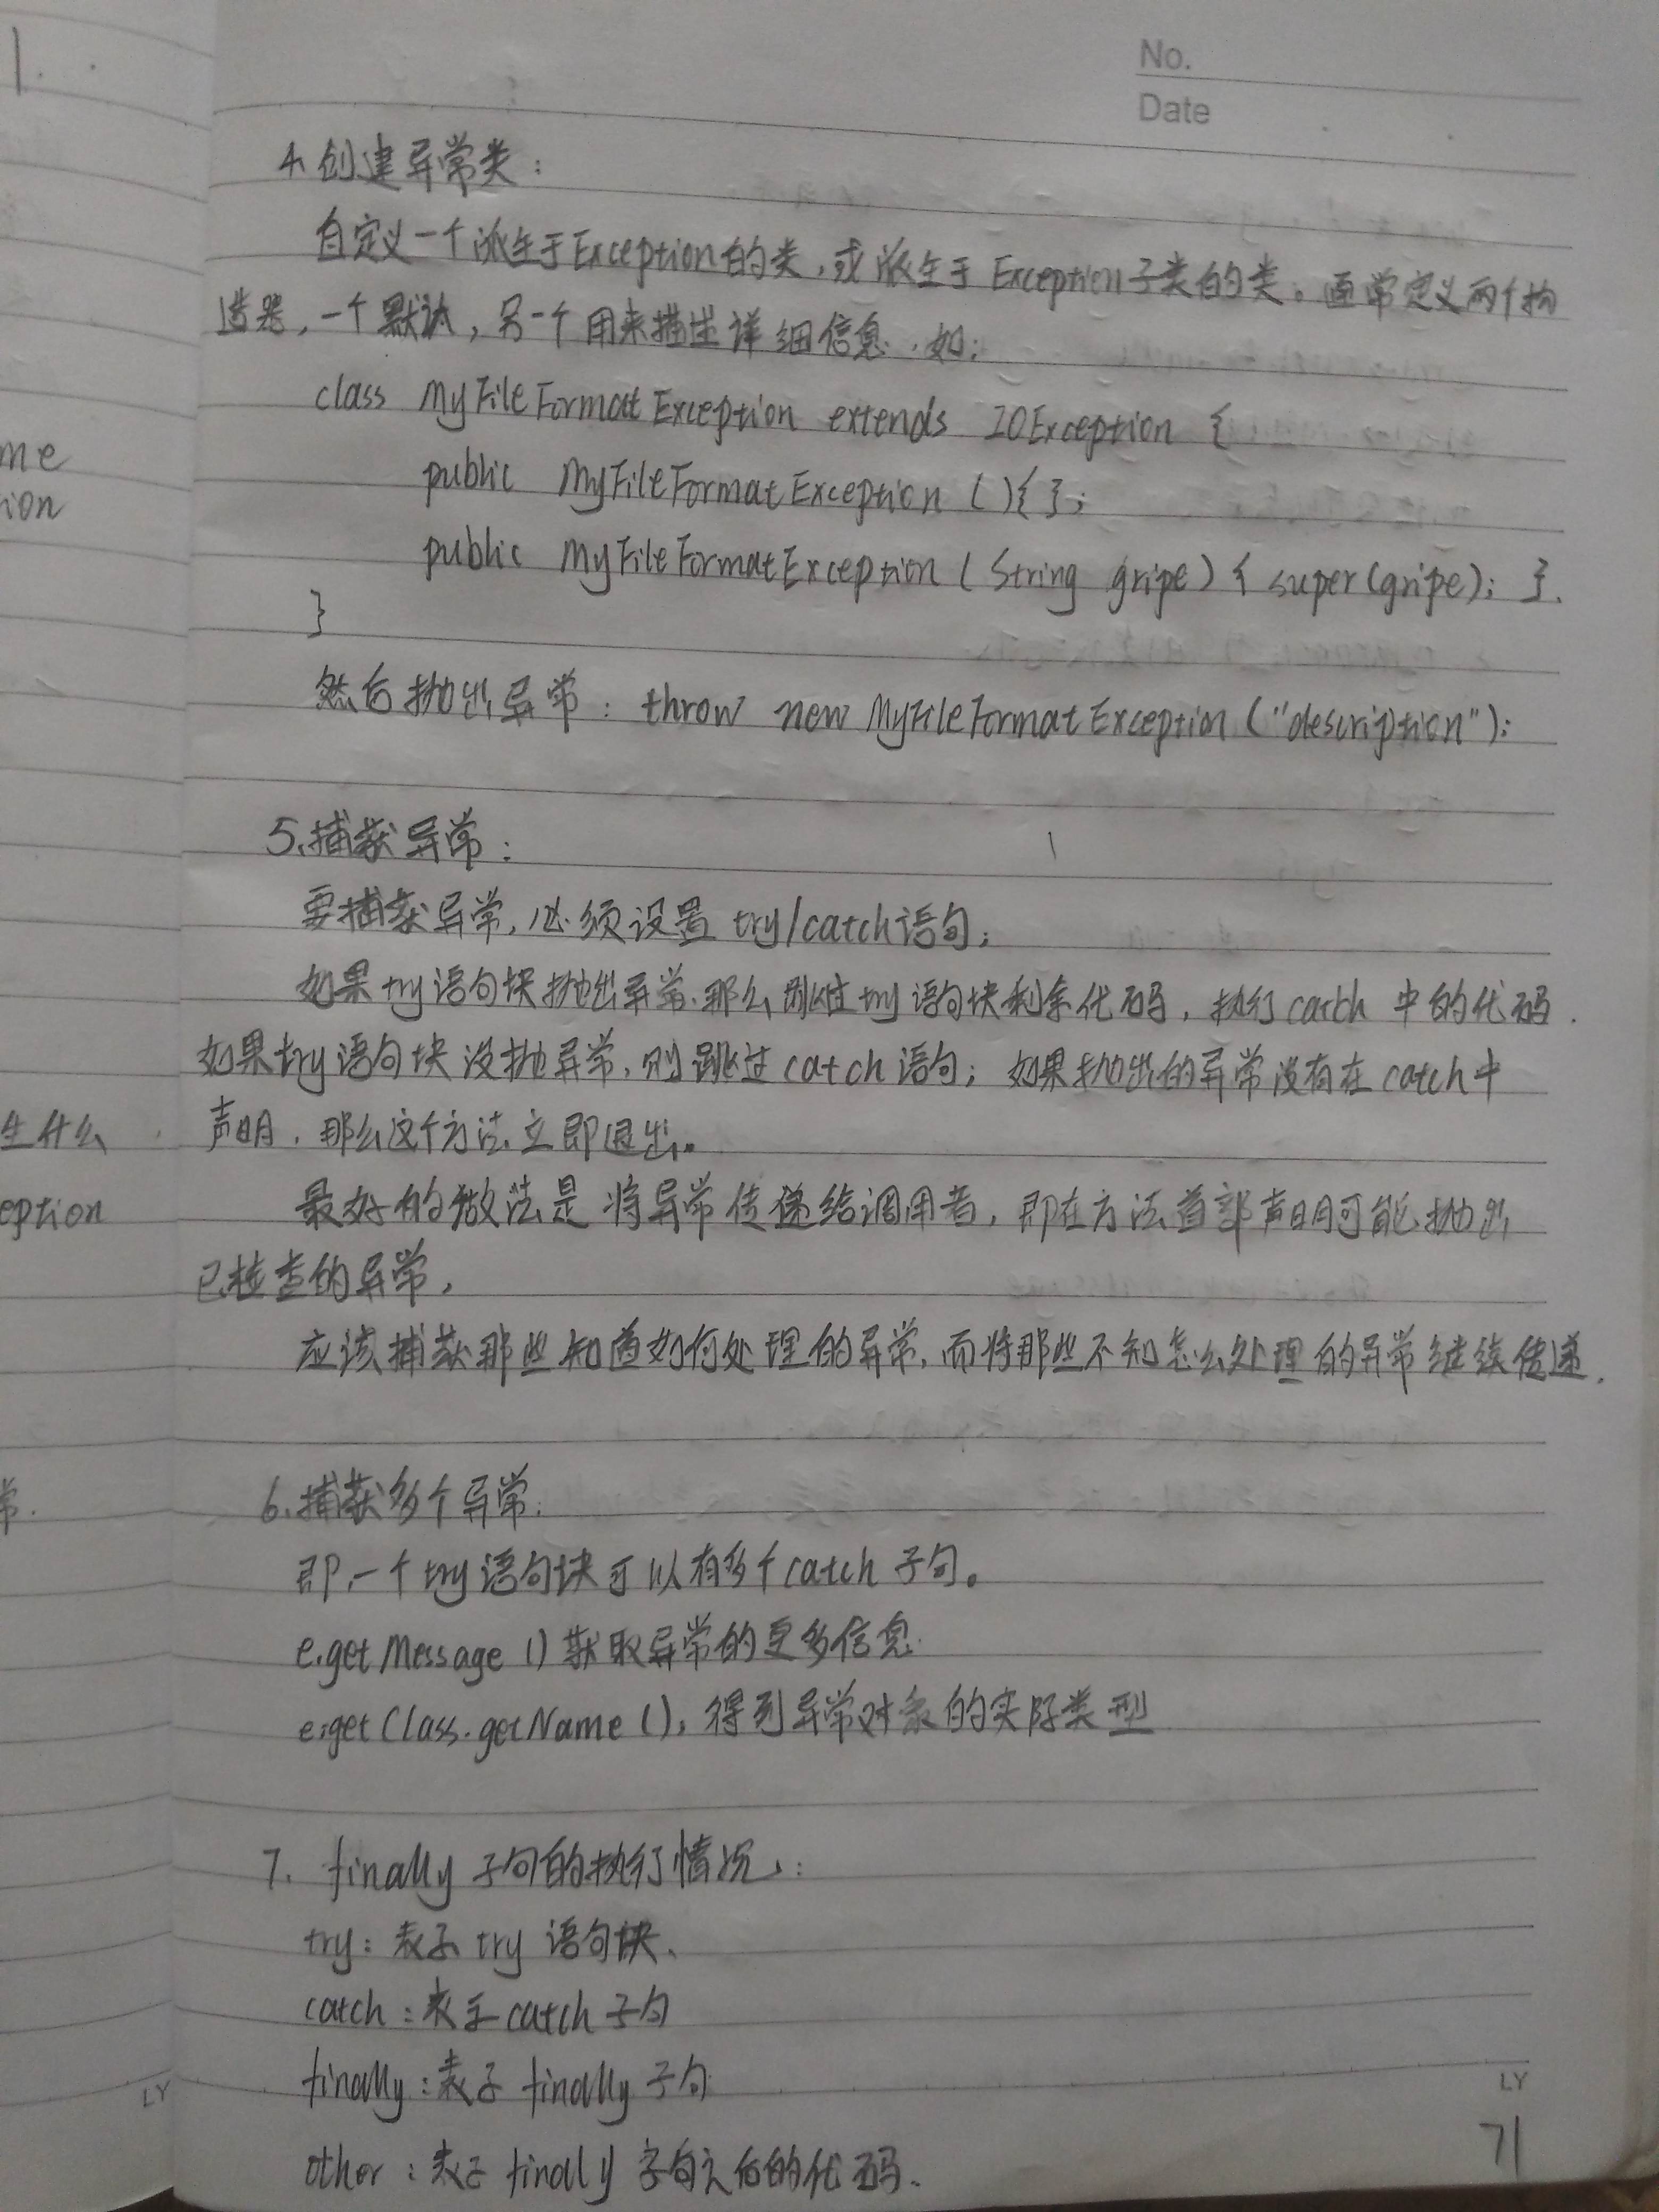 No.
Date
4.创建异常类:
自定义一个派生于Exception的类,或派生于Exception子类的类。通常定义两个构
造器,一个默认,另一个用来描述详细信息.如:
class MyFileFormatException extends IOException {
public MyFileFormatException (){ };
public MyFileFormatException ( String gripe) { super(gripe); }.
}
然后抛出异常: throw new MyFileFormatException ("description");
5.捕获异常:
要捕获异常,必须设置 try/catch语句;
如果try语句块抛出异常.那么跳过try语句块剩余代码,执行catch 中的代码.
如果try语句块没抛异常,则跳过catch语句;如果抛出的异常没有在catch中
声明.那么这个方法立即退出。
最好的做法是将异常传递给调用者,即在方法首部声明可能抛出
已检查的异常,
应该捕获那些知道如何处理的异常,而将那些不知怎么处理的异常继续传递.
6.捕获多个异常:
即一个try语句块可以有多个catch 子句。
e.getMessage () 获取异常的更多信息.
e.getClass.getName (); 得到异常对象的实际类型
7. finally 子句的执行情况:
try:表示try 语句块.
catch:表示catch 子句
finally:表示 finally 子句
other:表示 finally 字句之后的代码.
LY
71
me
ion
生什么
eption
常.
LY